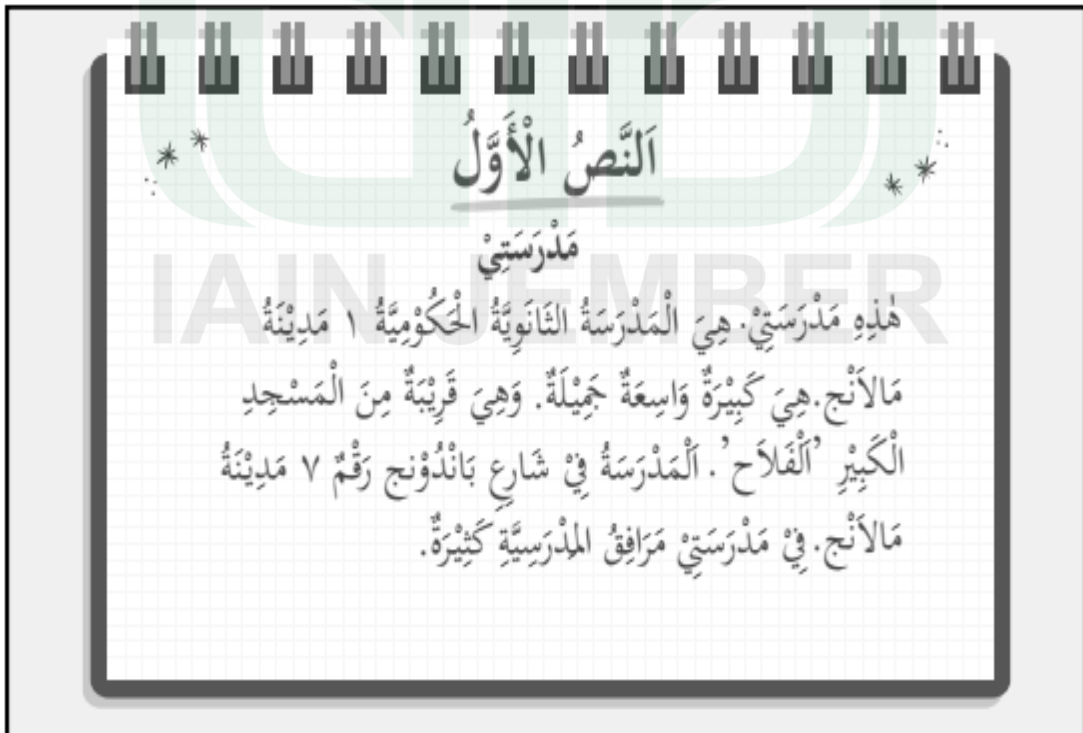 اَلنَّصُ الْأَوَّلُ
مَدْرَسَتِيْ
هٰذِهِ مَدْرَسَتِيْ. هِيَ الْمَدْرَسَةُ الثَّانَوِيَّةُ الْحَكُوْمِيَّةُ ١ مَدِيْنَةُ
مَالاَنْج. هِيَ كَبِيْرَةٌ وَاسِعَةٌ جَمِيْلَةٌ. وَهِيَ قَرِيْبَةٌ مِنَ الْمَسْجِدِ
الْكَبِيْرِ ’اَلْفَلاَح’. اَلْمَدْرَسَةُ فِيْ شَارِعِ بَانْدُوْنج رَقْمٌ ٧ مَدِيْنَةُ
مَالاَنْج. فِيْ مَدْرَسَتِيْ مَرَافِقُ المِدْرَسِيَّةِ كَثِيْرَةٌ.
IAIN JEMBER